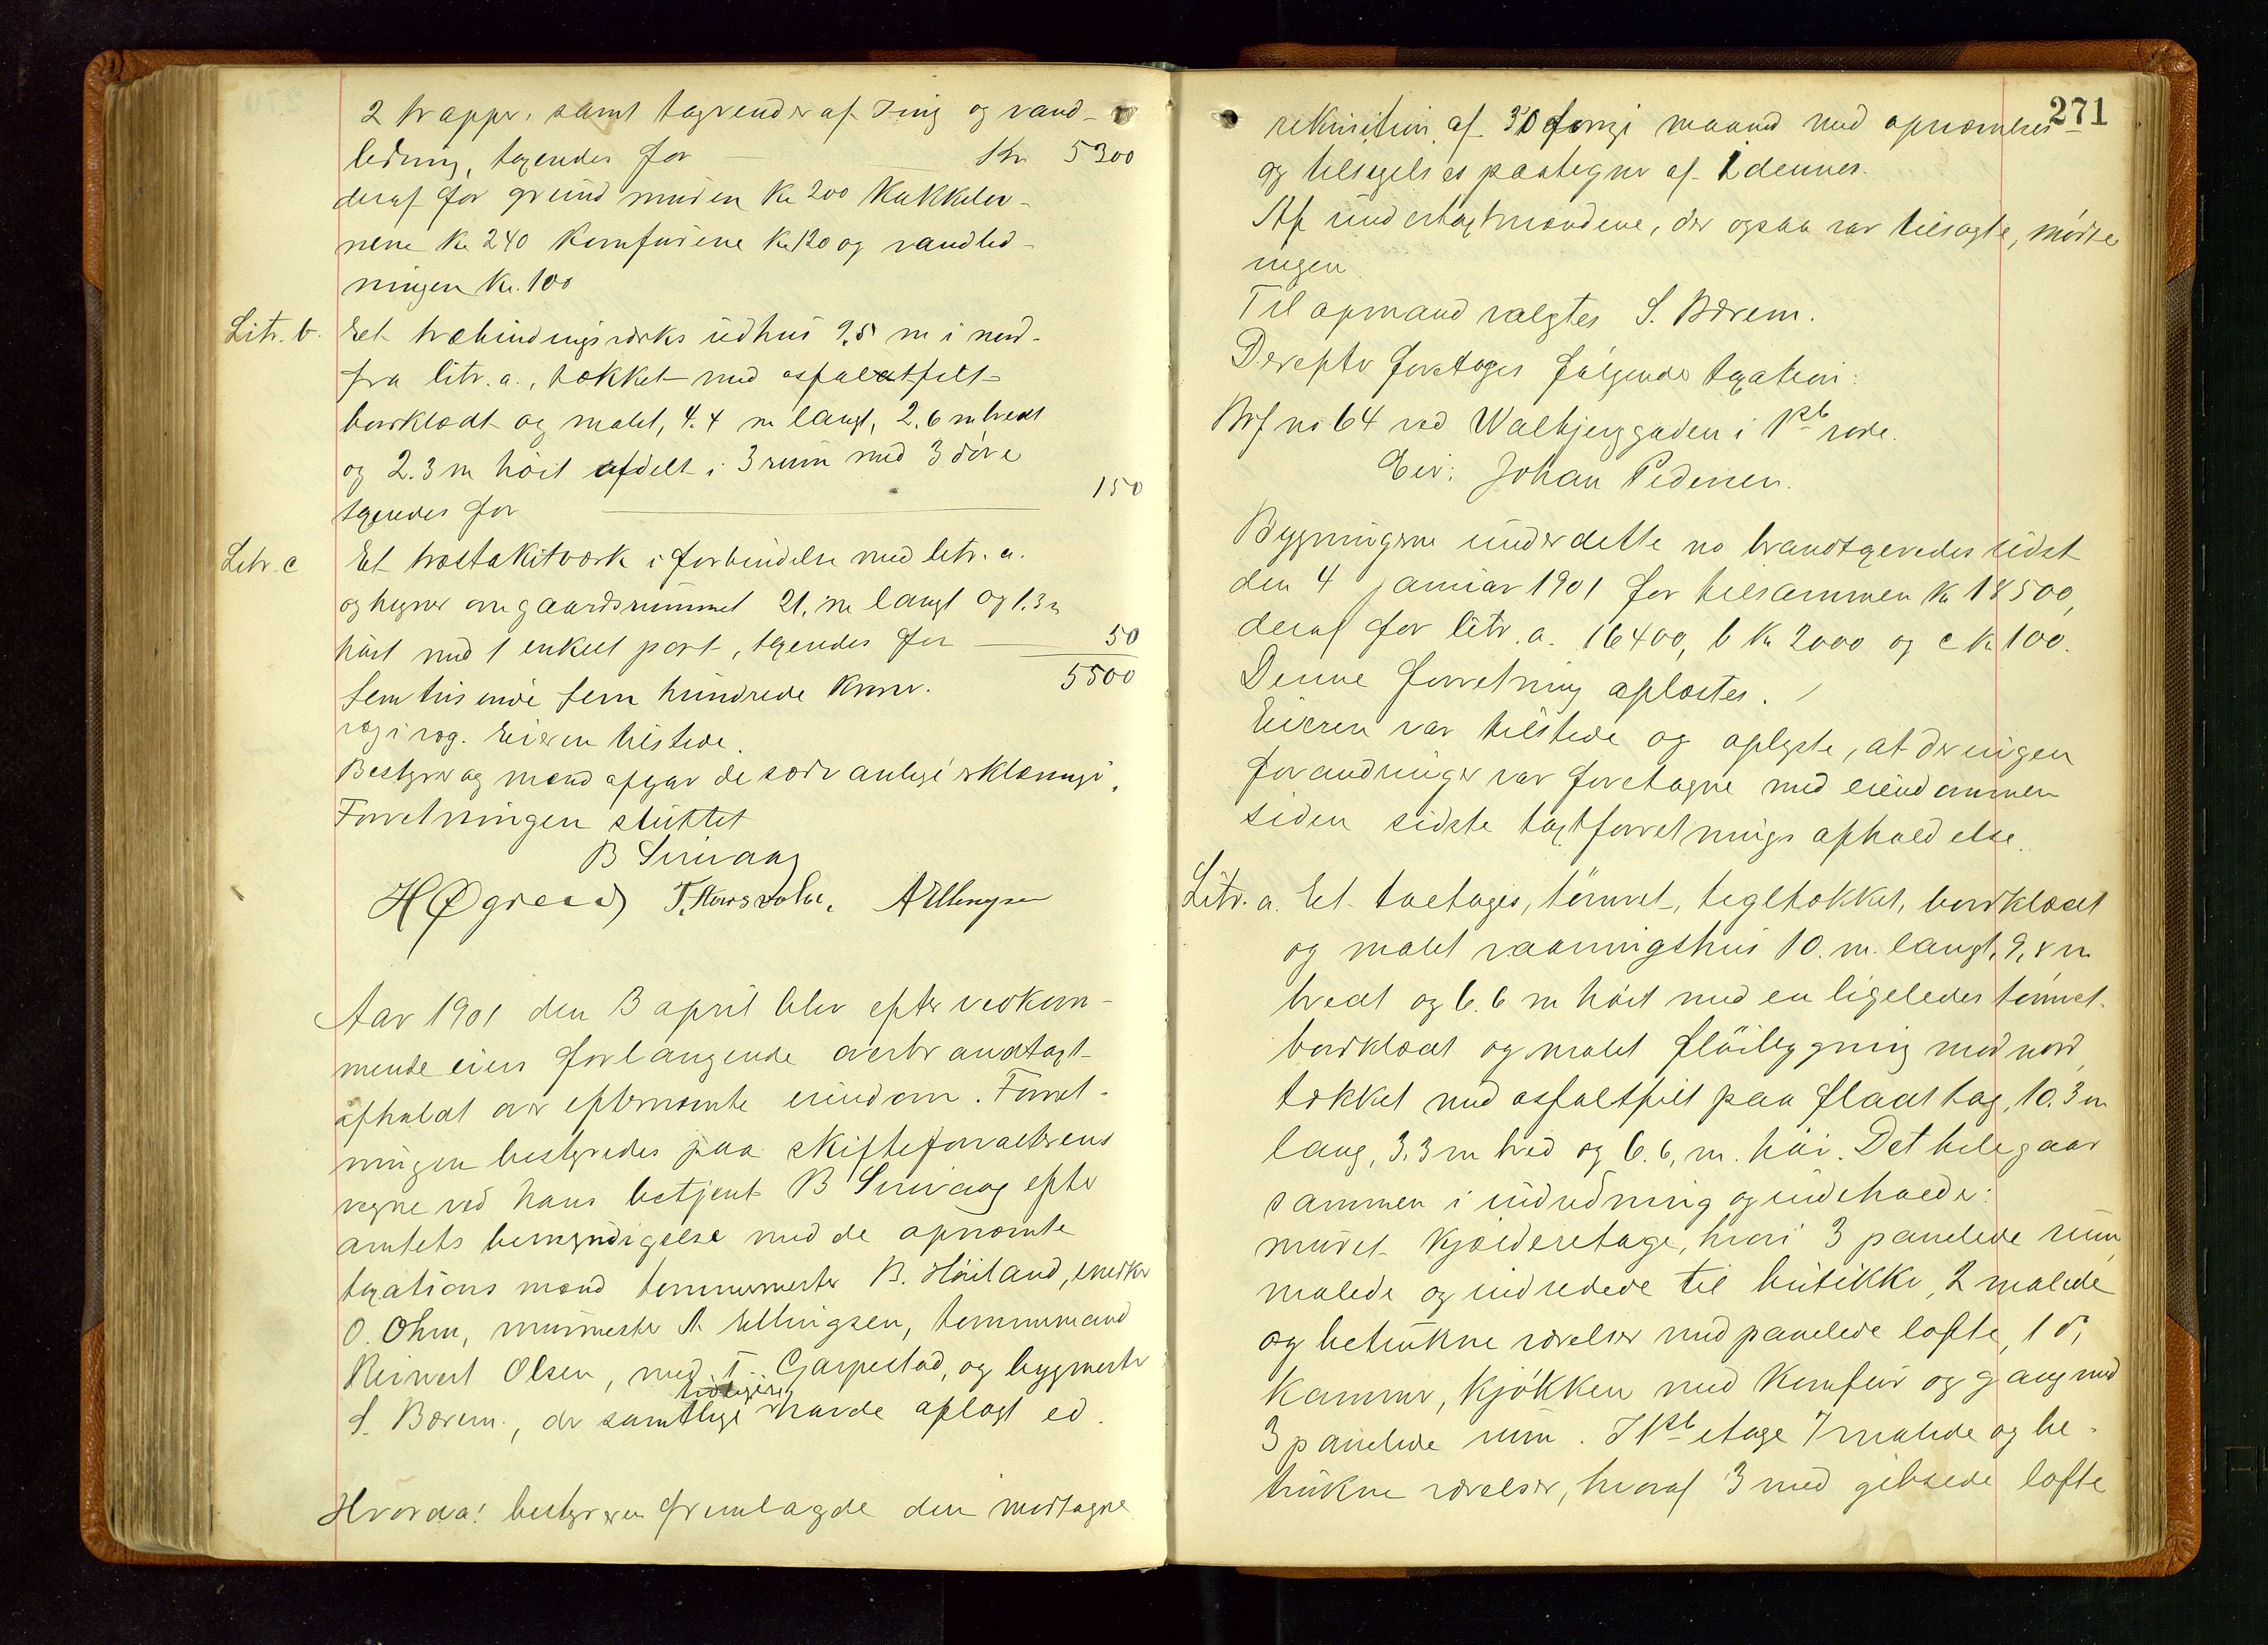 2 trapper, samt tagrender af Zing og vand-
ledning, taxeredes for Kr 5300
deraf for grundmuren Kr 200 Kakkelov-
nene Kr 240 Komfurene Kr 120 og vandled-
ningen Kr. 100
Litr. b. Et træbindingsværks udhus 9,5 m i nord
fra litr. a., tækket med asfaltfilt
bordklædt og malet, 4.4 m langt, 2.6 m bredt
og 2.3 m höit afdelt i 3 rum med 3 döre
taxeredes for 150
Litr. c Et træstakitværk i forbindelse med litr. a.
og hegner om gaardsrummet 21. m langt og 1.3 m
höit med 1 enkelt port, taxeredes for 50
5500
fem tusinde fem hundrede Kroner.
Eieren tilstede.
Bestyrer og mænd afgav de sædvanlige erklæringer.
Forretningen sluttet
B Sirivaag
H Øgreid T. Thorsdahl. A Ellingsen
Aar 1901 den 3 april blev efter vedkom-
mende eiers forlangende overbrandtaxt
afholdt over efternævnte eiendom. Forret-
ningen bestyredes paa skifteforvalterens
vegne ved hans betjent B Sirivaag efter
amtets bemyndigelse med de opnævnte
taxationsmænd tømmermester B. Höiland, snedker
O. Ohm, murmester A Ellingsen, tømmermand
Reinert Olsen, med T. Garpestad, og bygmester
S. Bærem., der samtlige tidligere havde aflagt ed.
Hvorda! bestyreren fremlagde den modtagne
271
rekvisition af 30 forrige maaned med opnævnelses-
og tilsigelsespaategner af 1 dennes.
Af undertaxtmændene, der ogsaa var tilsagte, mödte
ingen.
Til opmand valgtes S. Bærem.
Derefter foretoges fölgende taxation:
Brf no 64 ved Walbjerggaden i 1ste rode.
Eier: Johan Pedersen.
Bygningerne under dette no brandtaxeredes sidst
den 4 januar 1901 for tilsammen Kr 18500,
deraf for litr. a. 16400, b Kr 2000 og c Kr 100.
Denne forretning oplæstes.
Eieren var tilstede og oplyste, at der ingen
forandringer var foretagne med eiendommen
siden sidste taxtforretnings afholdelse.
Litr. a. Et toetages, tömret, tegltækket, bordklædt
og malet vaaningshus 10. m. langt, 9,8 m
bredt og 6.6 m höit med en ligeledes tömret
bordklædt og malet flöibygning mod nord,
tækket med asfaltfilt paa fladt tag, 10.3 m
lang, 3.3 m bred og 6.6, m. höi. Det hele gaar
sammen i indredning og indeholder:
muret Kjælderetage, hvori 3 panelede rum,
malede og indredede til butikker, 2 malede
og betrukne værelser med panelede lofte, 1 do,
Kammer, Kjökken med Komfur og gang med
3 panelede rum. I 1ste etage 7 malede og be-
trukne værelser, hvoraf 3 med gibsede lofte